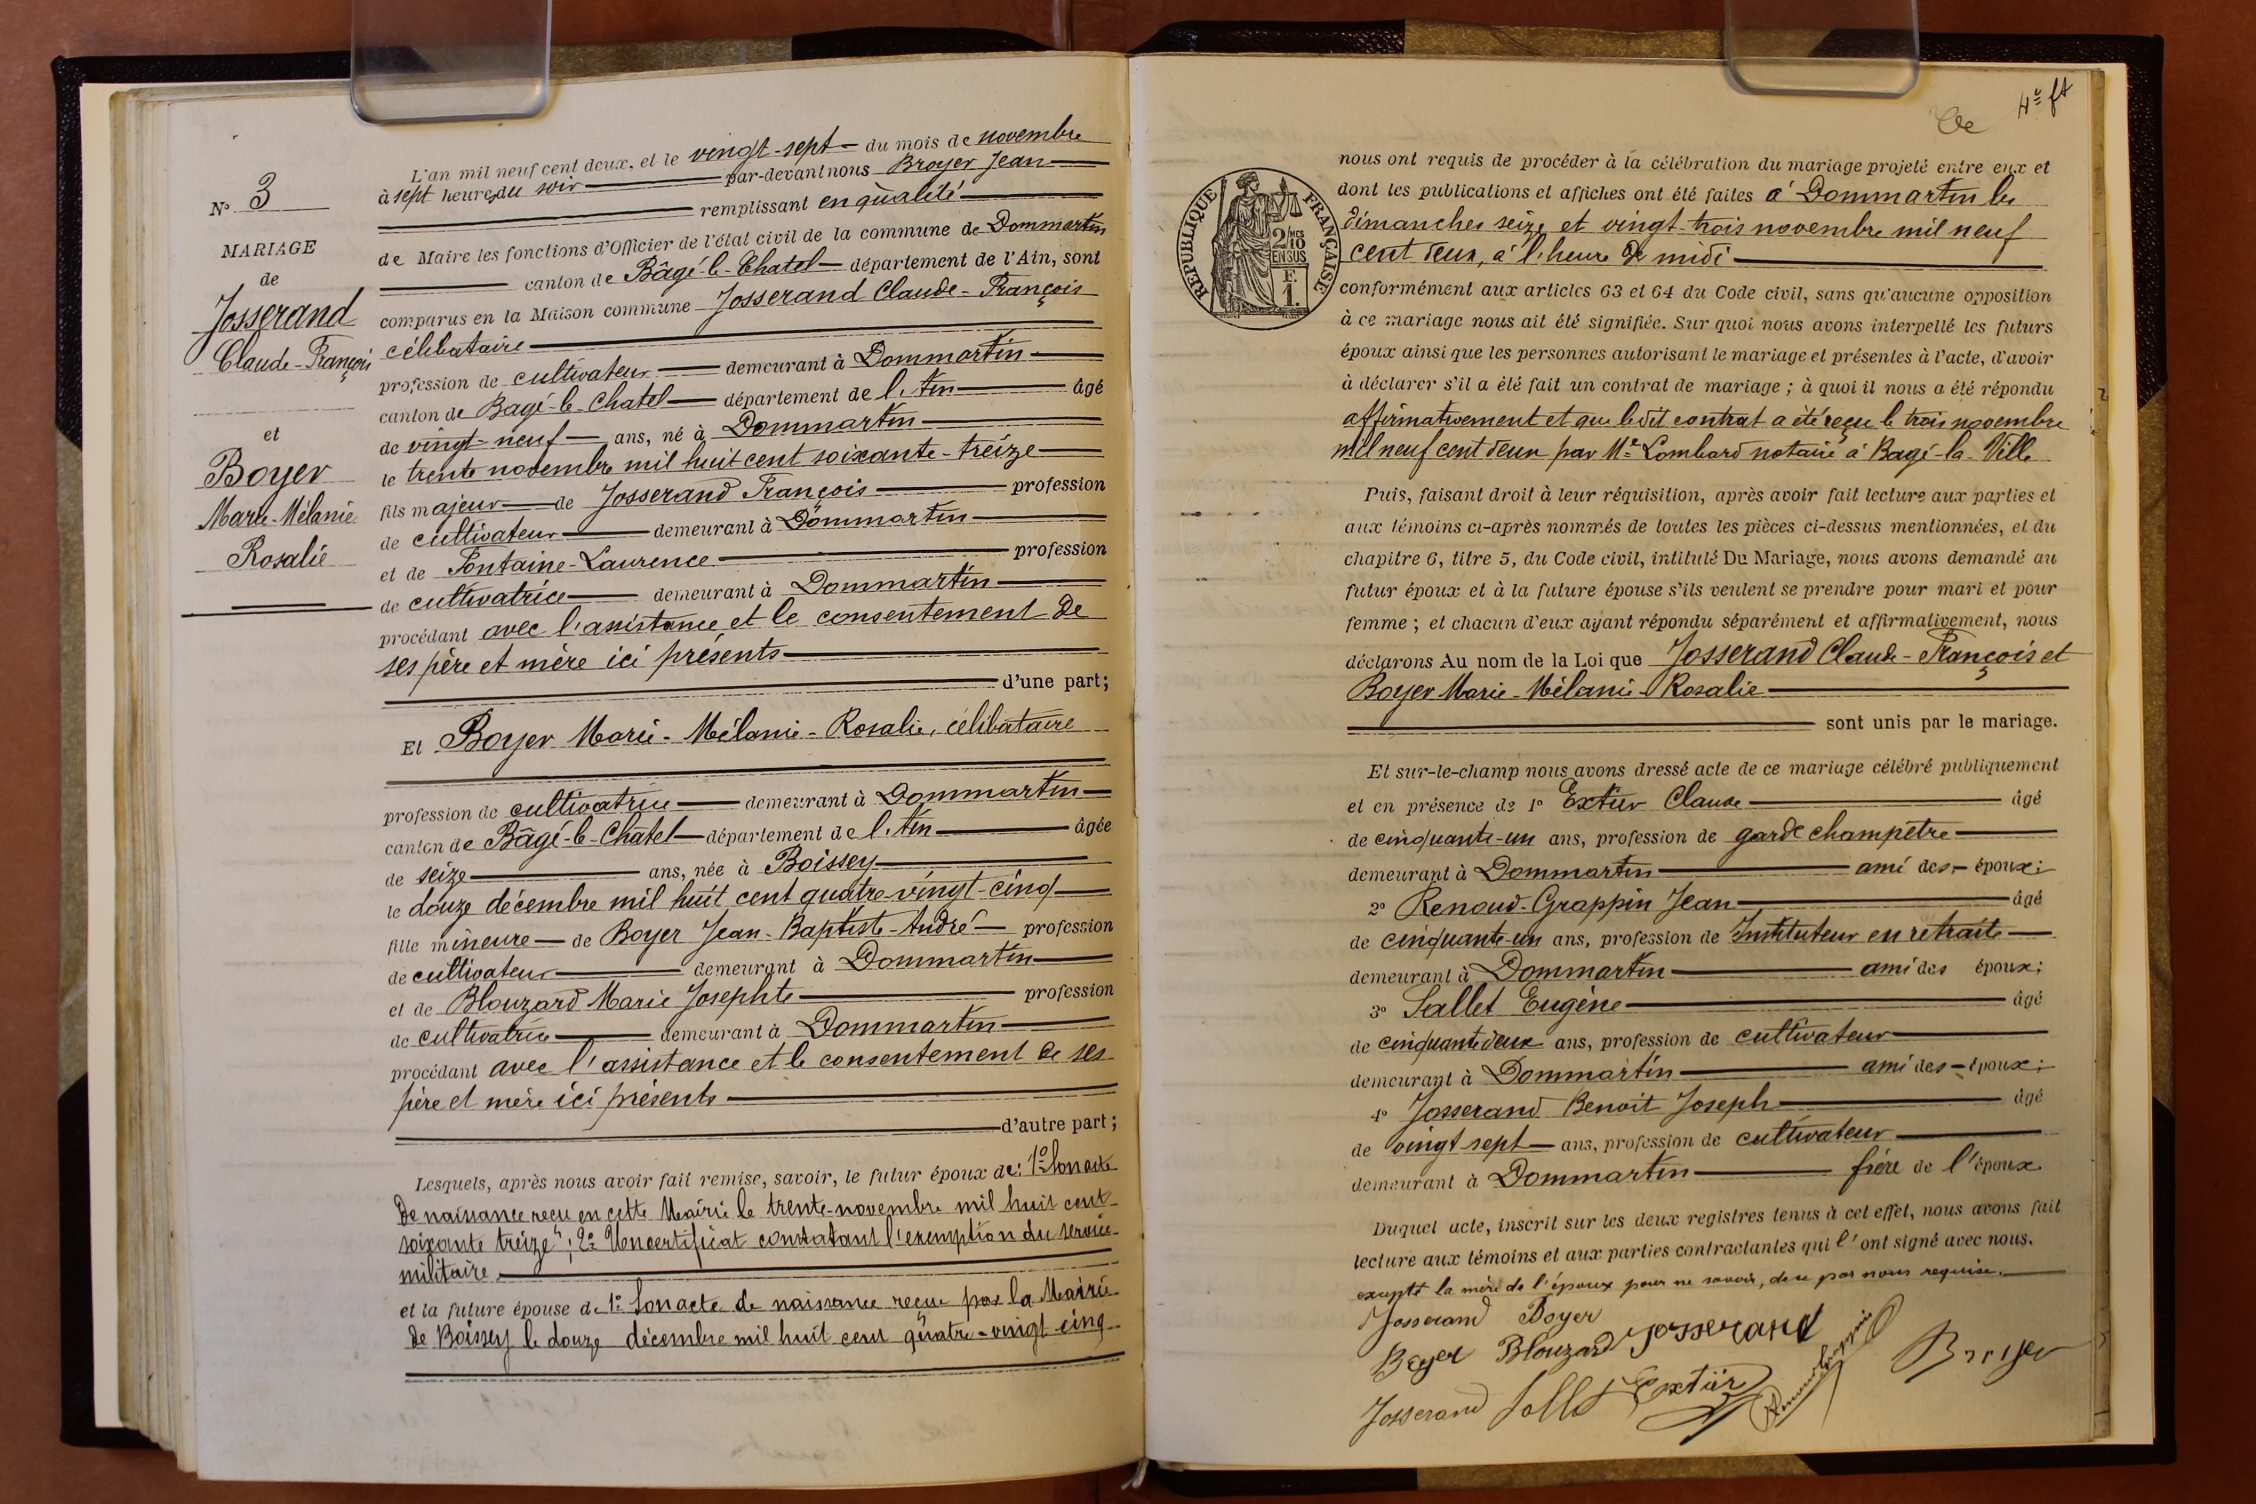 L'an mil neuf cent deux, et le vingt-sept du mois de novembre
à sept heures du soir par-devant nous Broyer Jean
remplissant en qualité
de Maire les fonctions d'Officier de l'état civil de la commune de Dommartin
canton de Bâgé-le-Chatel département de l'Ain, sont
comparus en la Maison commune Josserand Claude-François
célibataire
profession de cultivateur demeurant à Dommartin
canton de Bagé-le-Chatel département de l'Ain âgé
de vingt-neuf ans, né à Dommartin
le trente novembre mil huit cent soixante-treize
fils majeur de Josserand François profession
de cultivateur demeurant à Dommartin
et de Fontaine-Laurence profession
de cultivatrice demeurant à Dommartin
procédant avec l'assistance et le consentement de
ses père et mère ici présents
d'une part;
Et Boyer Marie-Mélanie-Rosalie, célibataire
profession de cultivatrice demeurant à Dommartin
canton de Bâgé-le-Châtel département de l'Ain âgée
de seize ans, née à Boissey
le douze décembre mil huit cent quatre-vingt-cinq
fille mineure de Boyer Jean-Baptiste-André profession
de cultivateur demeurant à Dommartin
et de Blouzard Marie Josephte profession
de cultivatrice demeurant à Dommartin
procédant avec l'assistance et le consentement de ses
père et mère ici présents
d'autre part;
Lesquels, après nous avoir fait remise, savoir, le futur époux de: 1º Son acte
de naissance reçu en cette Mairie le trente-novembre mil huit cent
soixante treize; 2º Un certificat constatant l'exemption du service
militaire
et la future épouse de 1º Son acte de naissance reçue par la Mairie
de Boissey le douze décembre mil huit cent quatre-vingt cinq
Nº 3
MARIAGE
de
Josserand
Claude-François
et
Boyer
Marie-Mélanie
Rosalie
4e ft
RÉPUBLIQUE FRANÇAISE
2/10 MES
EN SUS
F.
1.
nous ont requis de procéder à la célébration du mariage projeté entre eux et
dont les publications et affiches ont été faites à Dommartin les
dimanches seize et vingt-trois novembre mil neuf
cent deux, à l'heure de midi
conformément aux articles 63 et 64 du Code civil, sans qu'aucune opposition
à ce mariage nous ait été signifiée. Sur quoi nous avons interpellé les futurs
époux ainsi que les personnes autorisant le mariage et présentes à l'acte, d'avoir
à déclarer s'il a été fait un contrat de mariage ; à quoi il nous a été répondu
affirmativement et que le dit contrat a été reçu le trois novembre
mil neuf cent deux par Me Lombard notaire à Bagé-la-Ville
Puis, faisant droit à leur réquisition, après avoir fait lecture aux parties et
aux témoins ci-après nommés de toutes les pièces ci-dessus mentionnées, et du
chapitre 6, titre 5, du Code civil, intitulé Du Mariage, nous avons demandé au
futur époux et à la future épouse s'ils veulent se prendre pour mari et pour
femme ; et chacun d'eux ayant répondu séparément et affirmativement, nous
déclarons Au nom de la Loi que Josserand Claude-François et
Boyer Marie-Mélanie-Rosalie
sont unis par le mariage.
Et sur-le-champ nous avons dressé acte de ce mariage célébré publiquement
et en présence de 1º Extier Claude âgé
de cinquante-un ans, profession de garde champêtre
demeurant à Dommartin ami des époux;
2º Renoud-Grappin Jean âgé
de cinquante-un ans, profession de Instituteur en retraite
demeurant à Dommartin ami des époux;
3º Sallet Eugène âgé
de cinquante deux ans, profession de cultivateur
demeurant à Dommartin ami des époux;
4º Josserand Benoit Joseph âgé
de vingt sept ans, profession de cultivateur
demeurant à Dommartin frère de l'époux
Duquel acte, inscrit sur les deux registres tenus à cet effet, nous avons fait
lecture aux témoins et aux parties contractantes qui l'ont signé avec nous.
excepté la mère de l'époux pour ne savoir, de ce par nous requise.
Josserand Boyer
Boyer Blouzard Josserand
Josserand Sallet Extier Renoud Grappin Broyer